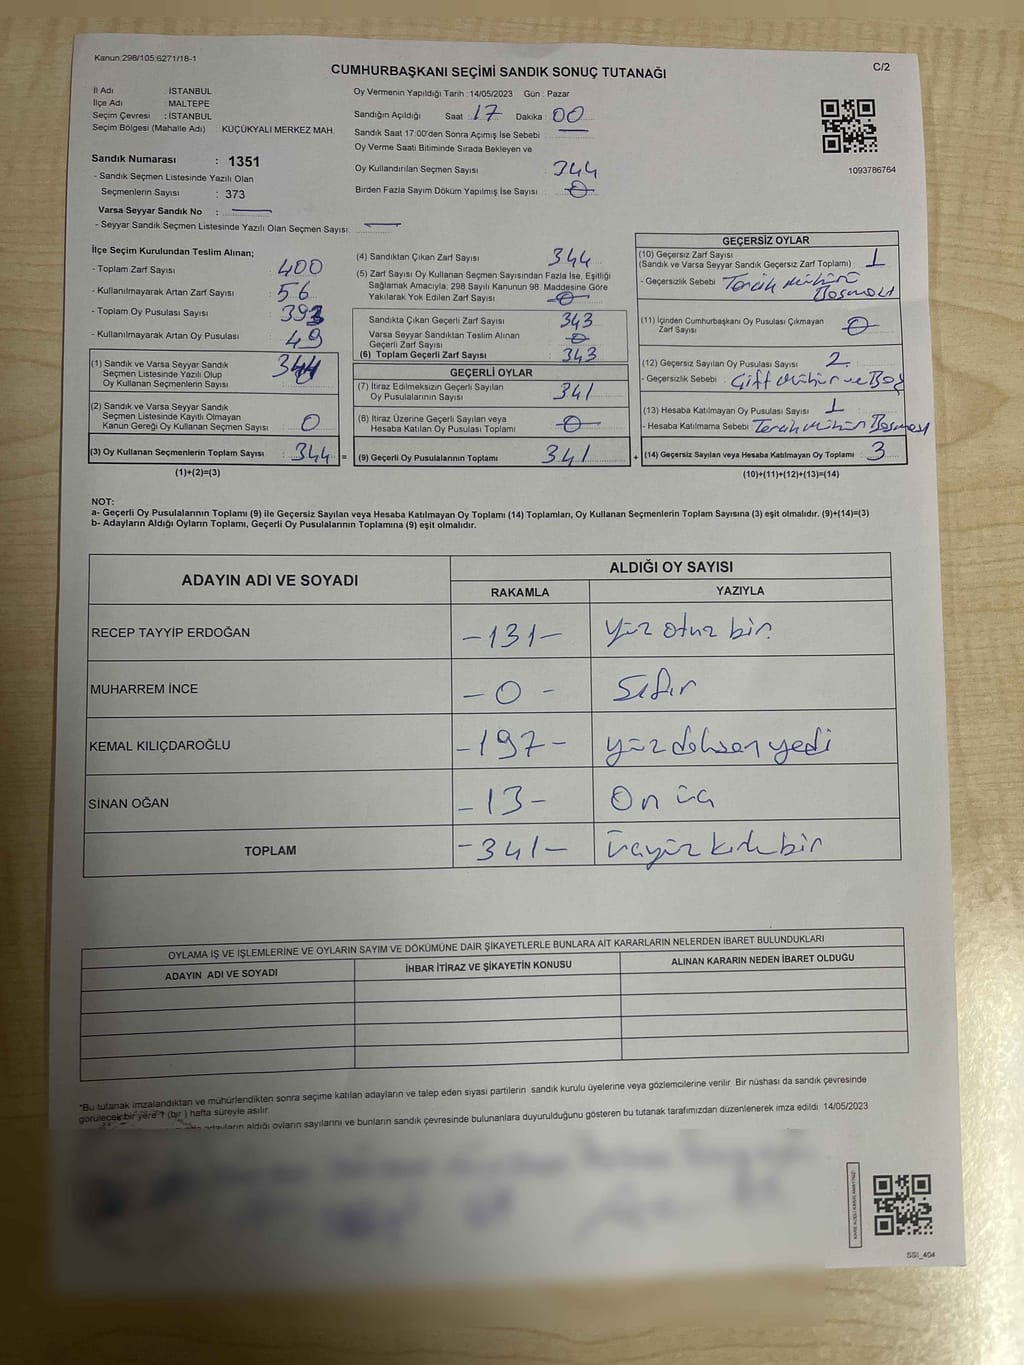 Kanun:298/105;6271/18-1
C/2
CUMHURBAŞKANI SEÇİMİ SANDIK SONUÇ TUTANAĞI
İl Adı : İSTANBUL
İlçe Adı : MALTEPE
Seçim Çevresi : İSTANBUL
Seçim Bölgesi (Mahalle Adı) : KÜÇÜKYALI MERKEZ MAH.
Sandık Numarası : 1351
- Sandık Seçmen Listesinde Yazılı Olan
Seçmenlerin Sayısı : 373
Varsa Seyyar Sandık No : —
- Seyyar Sandık Seçmen Listesinde Yazılı Olan Seçmen Sayısı: —
Oy Vermenin Yapıldığı Tarih :14/05/2023 Gün : Pazar
Sandığın Açıldığı Saat : 17 Dakika : 00
Sandık Saat 17:00'den Sonra Açılmış İse Sebebi : —
Oy Verme Saati Bitiminde Sırada Bekleyen ve
Oy Kullandırılan Seçmen Sayısı : 344
Birden Fazla Sayım Döküm Yapılmış İse Sayısı : 0
1093786764
İlçe Seçim Kurulundan Teslim Alınan;
- Toplam Zarf Sayısı : 400
- Kullanılmayarak Artan Zarf Sayısı : 56
- Toplam Oy Pusulası Sayısı : 393
- Kullanılmayarak Artan Oy Pusulası : 49
(1) Sandık ve Varsa Seyyar Sandık
Seçmen Listesinde Yazılı Olup
Oy Kullanan Seçmenlerin Sayısı : 344
(2) Sandık ve Varsa Seyyar Sandık
Seçmen Listesinde Kayıtlı Olmayan
Kanun Gereği Oy Kullanan Seçmen Sayısı : 0
(3) Oy Kullanan Seçmenlerin Toplam Sayısı : 344 =
(1)+(2)=(3)
(4) Sandıktan Çıkan Zarf Sayısı : 344
(5) Zarf Sayısı Oy Kullanan Seçmen Sayısından Fazla İse, Eşitliği
Sağlamak Amacıyla; 298 Sayılı Kanunun 98. Maddesine Göre
Yakılarak Yok Edilen Zarf Sayısı : 0
Sandıkta Çıkan Geçerli Zarf Sayısı : 343
Varsa Seyyar Sandıktan Teslim Alınan
Geçerli Zarf Sayısı : 0
(6) Toplam Geçerli Zarf Sayısı : 343
GEÇERLİ OYLAR
(7) İtiraz Edilmeksizin Geçerli Sayılan
Oy Pusulalarının Sayısı : 341
(8) İtiraz Üzerine Geçerli Sayılan veya
Hesaba Katılan Oy Pusulası Toplamı : 0
(9) Geçerli Oy Pusulalarının Toplamı : 341 +
GEÇERSİZ OYLAR
(10) Geçersiz Zarf Sayısı
(Sandık ve Varsa Seyyar Sandık Geçersiz Zarf Toplamı) : 1
- Geçersizlik Sebebi : Tercih Mührü
Basması
(11) İçinden Cumhurbaşkanı Oy Pusulası Çıkmayan
Zarf Sayısı : 0
(12) Geçersiz Sayılan Oy Pusulası Sayısı : 2
- Geçersizlik Sebebi : Çift Mühür ve Boş
(13) Hesaba Katılmayan Oy Pusulası Sayısı : 1
- Hesaba Katılmama Sebebi : Tercih Mührün Basması
(14) Geçersiz Sayılan veya Hesaba Katılmayan Oy Toplamı : 3
(10)+(11)+(12)+(13)=(14)
NOT:
a- Geçerli Oy Pusulalarının Toplamı (9) ile Geçersiz Sayılan veya Hesaba Katılmayan Oy Toplamı (14) Toplamları, Oy Kullanan Seçmenlerin Toplam Sayısına (3) eşit olmalıdır. (9)+(14)=(3)
b- Adayların Aldığı Oyların Toplamı, Geçerli Oy Pusulalarının Toplamına (9) eşit olmalıdır.
ADAYIN ADI VE SOYADI
ALDIĞI OY SAYISI
RAKAMLA YAZIYLA
RECEP TAYYİP ERDOĞAN -131- yüz otuz bir
MUHARREM İNCE -0- Sıfır
KEMAL KILIÇDAROĞLU -197- yüz doksan yedi
SİNAN OĞAN -13- On üç
TOPLAM -341- üçyüz kırk bir
OYLAMA İŞ VE İŞLEMLERİNE VE OYLARIN SAYIM VE DÖKÜMÜNE DAİR ŞİKAYETLERLE BUNLARA AİT KARARLARIN NELERDEN İBARET BULUNDUKLARI
ADAYIN ADI VE SOYADI İHBAR İTİRAZ VE ŞİKAYETİN KONUSU ALINAN KARARIN NEDEN İBARET OLDUĞU
*Bu tutanak imzalandıktan ve mühürlendikten sonra seçime katılan adayların ve talep eden siyasi partilerin sandık kurulu üyelerine veya gözlemcilerine verilir. Bir nüshası da sandık çevresinde
görülecek bir yere 1 (bir ) hafta süreyle asılır.
adayların aldığı oyların sayılarını ve bunların sandık çevresinde bulunanlara duyurulduğunu gösteren bu tutanak tarafımızdan düzenlenerek imza edildi 14/05/2023
SSI_404